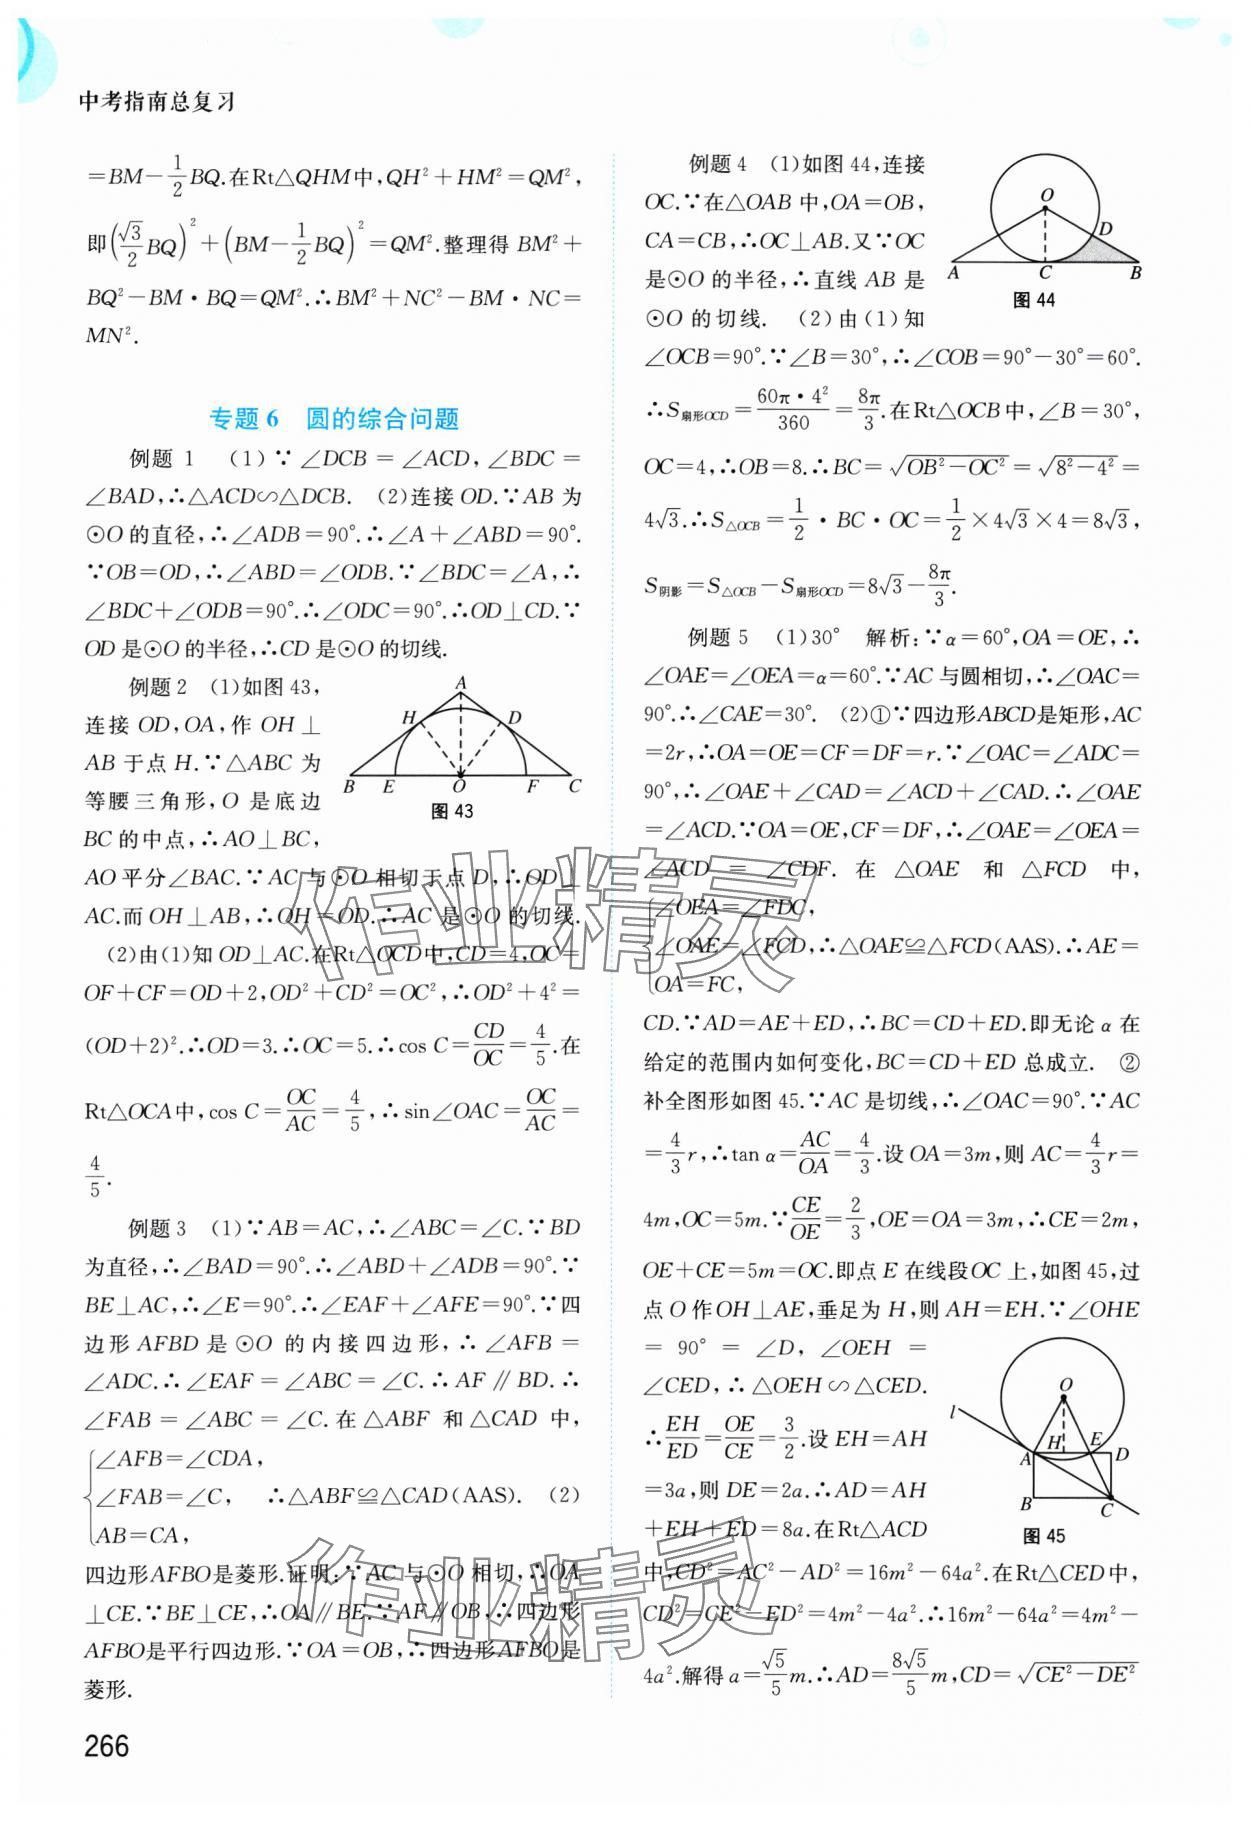 中考指南总复习
=BM-1/2BQ.在Rt△QHM中,QH²+HM²=QM²,
即(√3/2BQ)²+(BM-1/2BQ)²=QM².整理得BM²+
BQ²-BM·BQ=QM².∴BM²+NC²-BM·NC=
MN².
专题6 圆的综合问题
例题1 (1)∵∠DCB=∠ACD,∠BDC=
∠BAD,∴△ACD∽△DCB. (2)连接OD.∵AB为
⊙O的直径,∴∠ADB=90°.∴∠A+∠ABD=90°.
∵OB=OD,∴∠ABD=∠ODB.∵∠BDC=∠A,∴
∠BDC+∠ODB=90°.∴∠ODC=90°.∴OD⊥CD.∵
OD是⊙O的半径,∴CD是⊙O的切线.
例题2 (1)如图43,
连接OD,OA,作OH⊥
AB于点H.∵△ABC为
等腰三角形,O是底边
BC的中点,∴AO⊥BC,
A
H
D
B
E
O
F
C
图43
AO平分∠BAC.∵AC与⊙O相切于点D,∴OD⊥
AC.而OH⊥AB,∴OH=OD.∴AC是⊙O的切线.
(2)由(1)知OD⊥AC.在Rt△OCD中,CD=4,OC=
OF+CF=OD+2,OD²+CD²=OC²,∴OD²+4²=
(OD+2)².∴OD=3.∴OC=5.∴cos C=CD/OC=4/5.在
Rt△OCA中,cos C=OC/AC=4/5,∴sin∠OAC=OC/AC=
4/5.
例题3 (1)∵AB=AC,∴∠ABC=∠C.∵BD
为直径,∴∠BAD=90°.∴∠ABD+∠ADB=90°.∵
BE⊥AC,∴∠E=90°.∴∠EAF+∠AFE=90°.∵四
边形AFBD是⊙O的内接四边形,∴∠AFB=
∠ADC.∴∠EAF=∠ABC=∠C.∴AF∥BD.∴
∠FAB=∠ABC=∠C.在△ABF和△CAD中,
∠AFB=∠CDA,
∠FAB=∠C, ∴△ABF≌△CAD(AAS). (2)
AB=CA,
四边形AFBO是菱形.证明:∵AC与⊙O相切,∴OA
⊥CE.∵BE⊥CE,∴OA∥BE.∵AF∥OB,∴四边形
AFBO是平行四边形.∵OA=OB,∴四边形AFBO是
菱形.
266
例题4 (1)如图44,连接
OC.∵在△OAB中,OA=OB,
CA=CB,∴OC⊥AB.又∵OC
是⊙O的半径,∴直线AB是
⊙O的切线. (2)由(1)知
O
D
A
C
B
图44
∠OCB=90°.∵∠B=30°,∴∠COB=90°-30°=60°.
∴S扇形OCD=60π·4²/360=8π/3.在Rt△OCB中,∠B=30°,
OC=4,∴OB=8.∴BC=√(OB²-OC²)=√(8²-4²)=
4√3.∴S△OCB=1/2·BC·OC=1/2×4√3×4=8√3,
S阴影=S△OCB-S扇形OCD=8√3-8π/3.
例题5 (1)30° 解析:∵α=60°,OA=OE,∴
∠OAE=∠OEA=α=60°.∵AC与圆相切,∴∠OAC=
90°.∴∠CAE=30°. (2)①∵四边形ABCD是矩形,AC
=2r,∴OA=OE=CF=DF=r.∵∠OAC=∠ADC=
90°,∴∠OAE+∠CAD=∠ACD+∠CAD.∴∠OAE
=∠ACD.∵OA=OE,CF=DF,∴∠OAE=∠OEA=
∠ACD=∠CDF.在△OAE和△FCD中,
∠OEA=∠FDC,
∠OAE=∠FCD,∴△OAE≌△FCD(AAS).∴AE=
OA=FC,
CD.∵AD=AE+ED,∴BC=CD+ED.即无论α在
给定的范围内如何变化,BC=CD+ED总成立. ②
补全图形如图45.∵AC是切线,∴∠OAC=90°.∵AC
=4/3r,∴tan α=AC/OA=4/3.设OA=3m,则AC=4/3r=
4m,OC=5m.∵CE/OE=2/3,OE=OA=3m,∴CE=2m,
OE+CE=5m=OC.即点E在线段OC上,如图45,过
点O作OH⊥AE,垂足为H,则AH=EH.∵∠OHE
=90°=∠D,∠OEH=
∠CED,∴△OEH∽△CED.
∴EH/ED=OE/CE=3/2.设EH=AH
=3a,则DE=2a.∴AD=AH
+EH+ED=8a.在Rt△ACD
l
O
A
H
E
D
B
C
图45
中,CD²=AC²-AD²=16m²-64a².在Rt△CED中,
CD²=CE²-ED²=4m²-4a².∴16m²-64a²=4m²-
4a².解得a=√5/5m.∴AD=8√5/5m,CD=√(CE²-DE²)
作业精灵
作业精灵